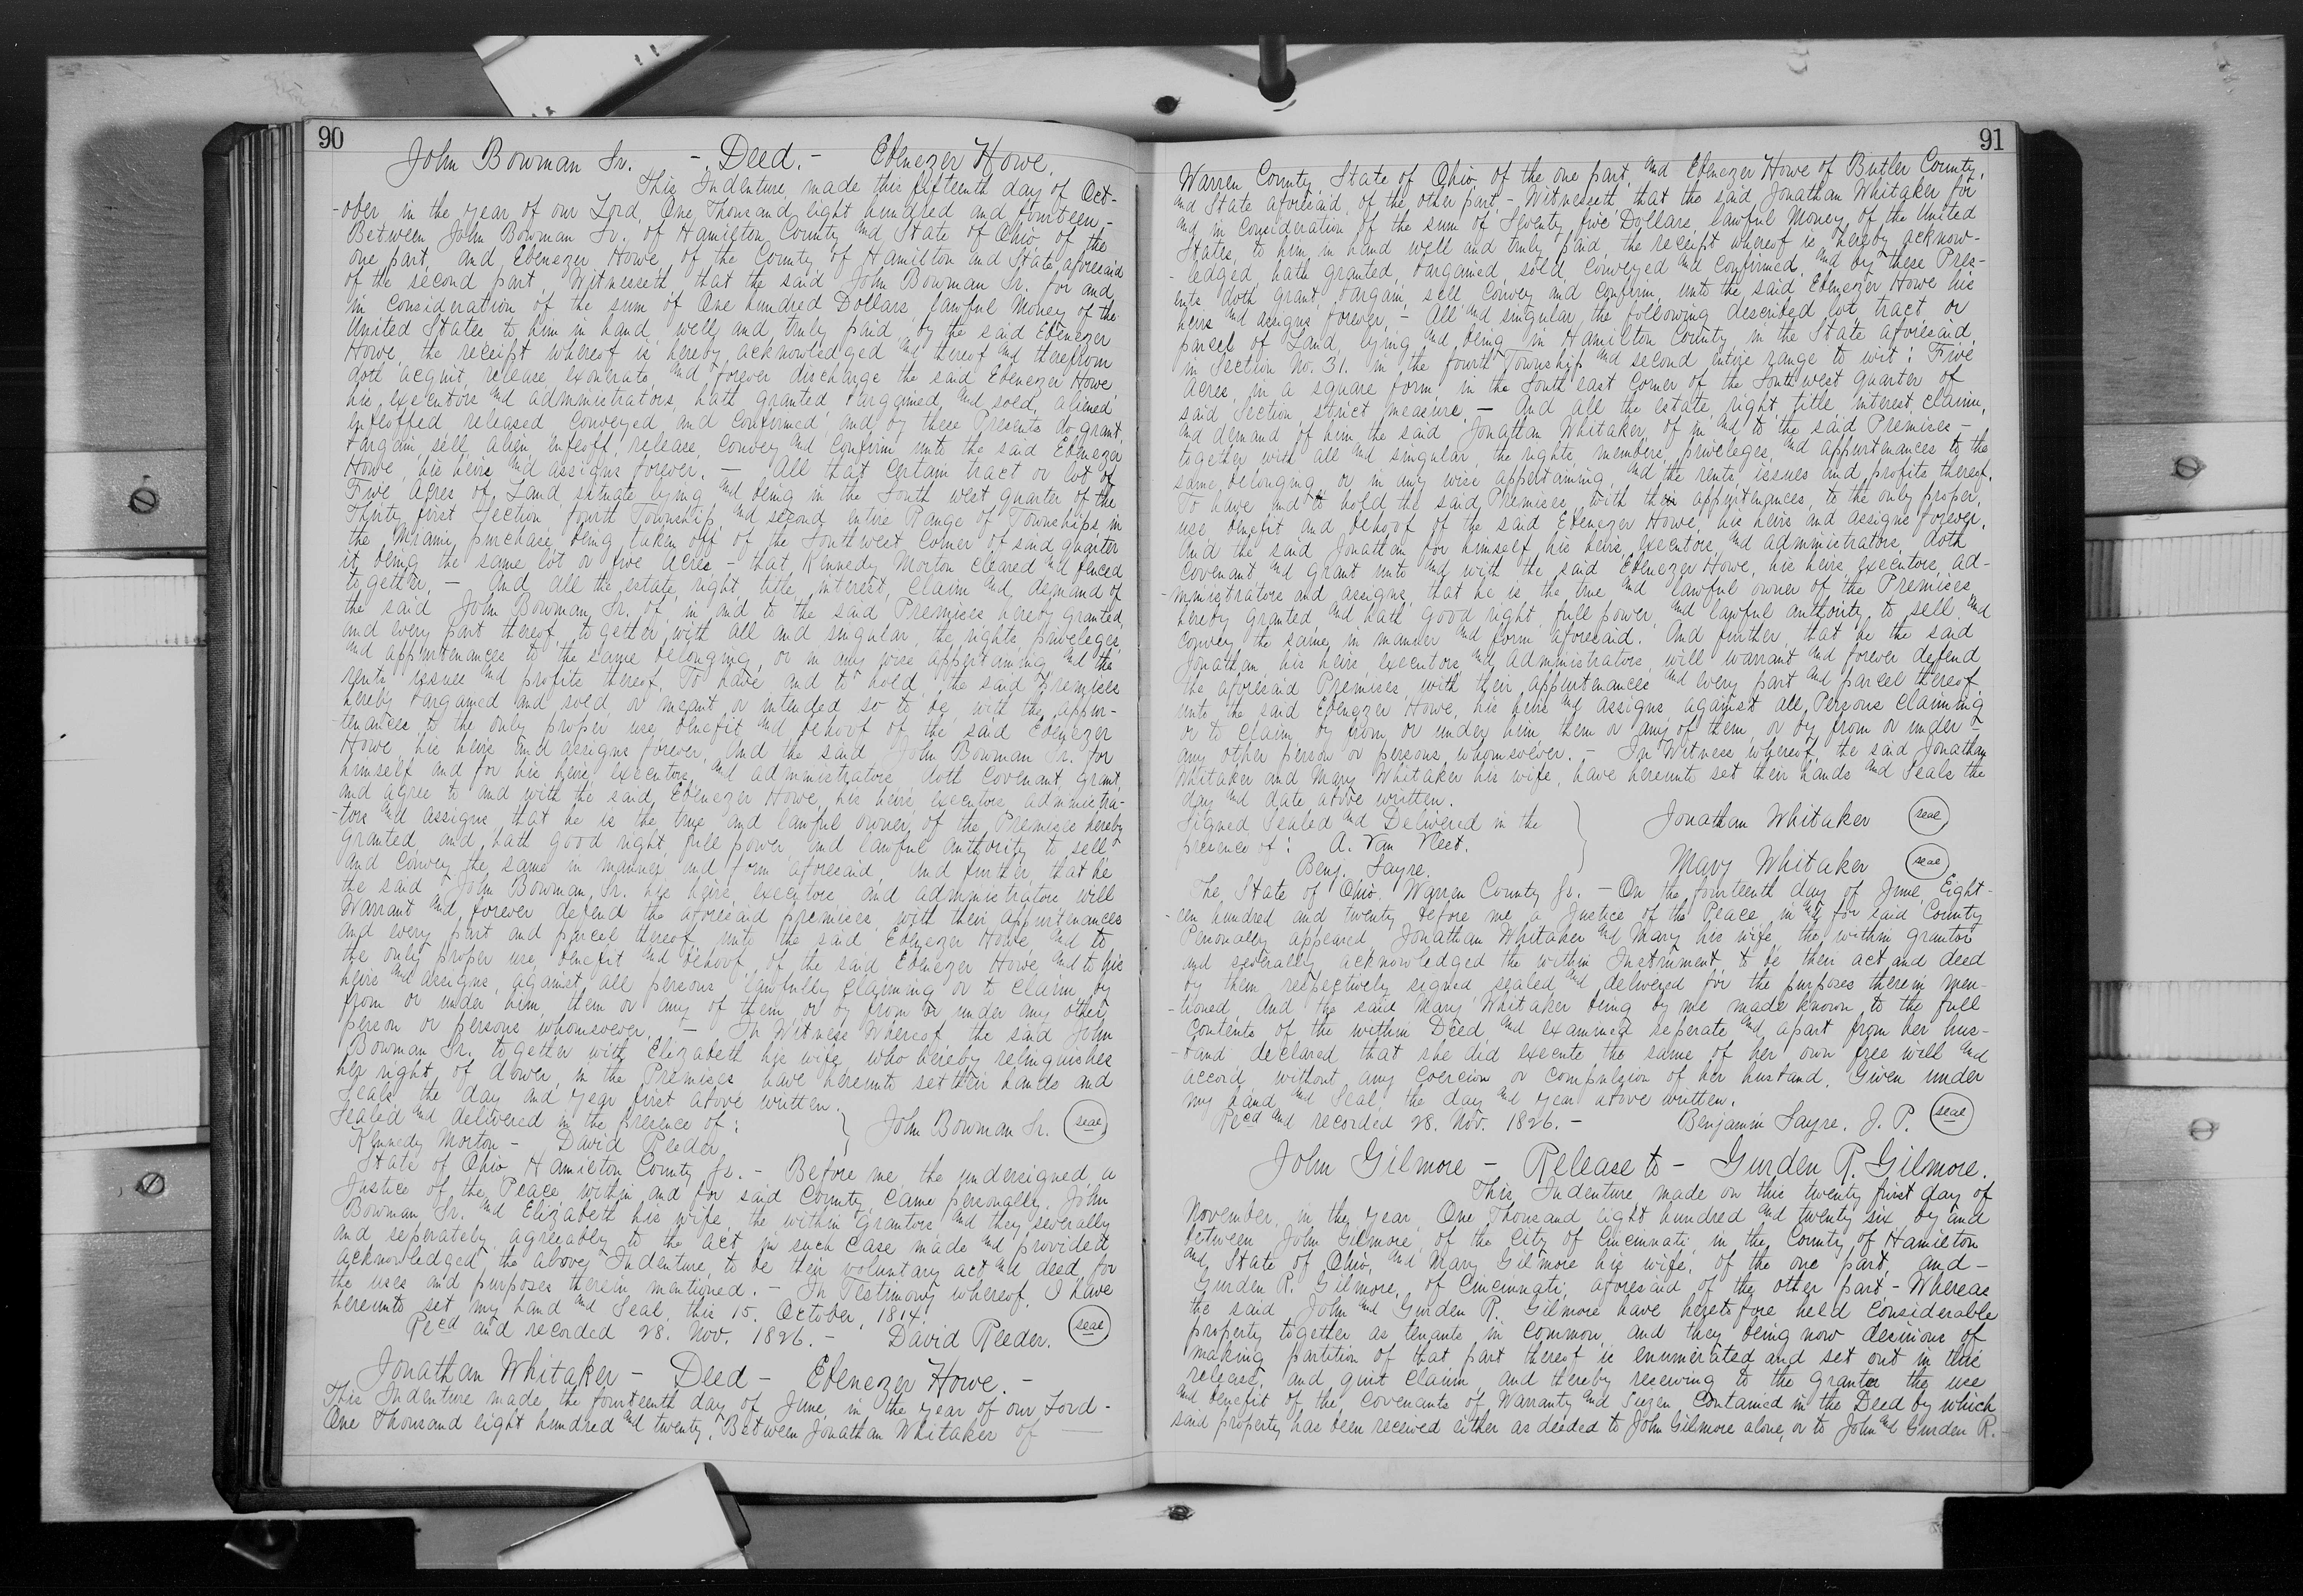 90
John Bowman Sr. - Deed. - Ebenezer Howe.
This Indenture made this fifteenth day of Oct-
-ober in the year of our Lord, One Thousand eight hundred and fourteen -
Between John Bowman Sr. of Hamilton County and State of Ohio of the
one part, and Ebenezer Howe, of the County of Hamilton and State aforesaid
of the second part, Witnesseth, that the said John Bowman Sr. for and
in consideration of the sum of One hundred Dollars, lawful Money of the
United States, to him in hand, well and truly paid, by the said Ebenezer
Howe, the receipt whereof is hereby acknowledged and thereof and therefrom
doth acquit, release, exonerate, and forever discharge the said Ebenezer Howe
his executors and administrators, hath granted, bargained, and sold, aliened
enfeoffed released conveyed and confirmed, and by these Presents do grant,
bargain sell, alien, enfeoff, release, convey and confirm unto the said Ebenezer
Howe, his heirs and assigns forever. - All that certain tract or lot of
Five Acres of Land situate lying and being in the South west quarter of the
Thirty first Section, fourth Township, and second entire Range of Townships in
the Miami purchase, being taken off of the Southwest corner of said quarter
it being the same lot or five acres - that Kennedy Morton cleared and fenced
together, - And all the estate, right, title, interest, claim and demand of
the said John Bowman Sr. of, in and to the said Premises hereby granted,
and every part thereof, together with all and singular the rights, priveleges,
and appurtenances to the same belonging, or in any wise appertaining, and the
rents issues and profits thereof, To have and to hold, the said Premises
hereby bargained and sold, or meant, or intended so to be, with the appur-
-tenances, to the only proper use, benefit and behoof of the said Ebenezer
Howe, his heirs and assigns forever, And the said John Bowman Sr. for
himself and for his heirs, executors, and administrators, doth Covenant, grant,
and agree to and with the said Ebenezer Howe, his heirs, executors, administra-
-tors and assigns, that he is the true and lawful owner of the Premises hereby
granted, and hath good right, full power, and lawful authority to sell
and convey the same in manner and form aforesaid, And further, that he
the said John Bowman, Sr. his heirs, executors, and administrators, will
Warrant and forever defend the aforesaid premises, with their appurtenances
and every part and parcel thereof, unto the said Ebenezer Howe, and to
the only proper use, benefit and behoof, of the said Ebenezer Howe, and to his
heirs and assigns, against all persons lawfully claiming or to claim by
from or under him, them or any of them or by from or under any other
person or persons whomsoever. - In Witness Whereof, the said John
Bowman Sr. together with Elizabeth his wife, who hereby relinquishes
her right of dower, in the Premises have hereunto set their hands and
Seals the day and year first above written.
Sealed and delivered in the presence of: John Bowman Sr. seal
Kennedy Morton - David Reeder
State of Ohio, Hamilton County Ss. - Before me, the undersigned, a
Justice of the Peace, within and for said County, came personally, John
Bowman, Sr. and Elizabeth his wife, the within Grantors and they severally
and seperately, agreeably to the act in such case made and provided,
acknowledged, the above Indenture, to be their voluntary act and deed, for
the uses and purposes therein mentioned. - In Testimony whereof, I have
hereunto set my hand and Seal, this 15. October, 1814.
Recd and recorded 28. Nov. 1826. - David Reeder. seal
Jonathan Whitaker - Deed - Ebenezer Howe. -
This Indenture made the fourteenth day of June in the year of our Lord -
One Thousand eight hundred and twenty, Between Jonathan Whitaker of
91
Warren County, State of Ohio of the one part, and Ebenezer Howe of Butler County,
and State aforesaid, of the other part, - Witnesseth that the said Jonathan Whitaker for
and in consideration of the sum of Seventy five Dollars, lawful Money of the United
States, to him in hand well and truly paid, the receipt whereof is hereby acknow-
-ledged, hath granted, bargained, sold, conveyed and confirmed, and by these Pres-
ents doth grant, bargain, sell, Convey and confirm, unto the said Ebenezer Howe his
heirs and assigns forever, - All and singular, the following described lot, tract, or
parcel of Land, lying and being in Hamilton County, in the State aforesaid,
in Section No. 31. in the fourth Township and second entire range to wit: Five
Acres, in a square form, in the South east Corner of the South west quarter of
said Section strict measure. - And all the estate, right, title, interest, claim,
and demand of him, the said Jonathan Whitaker, of in and to the said Premises -
together with all and singular, the rights, members, priveleges, and appurtenances to the
same belonging or in any wise appertaining, and the rents, issues and profits thereof,
To have and to hold the said Premises, with their appurtenances, to the only proper,
use benefit and behoof of the said Ebenezer Howe, his heirs and assigns forever.
And the said Jonathan for himself, his heirs, executors, and administrators, doth
Covenant and grant unto and with the said Ebenezer Howe, his heirs, executors, ad-
-ministrators and assigns, that he is the true and lawful owner of the Premises
hereby granted, and hath good right, full power, and lawful authority, to sell and
convey the same, in manner and form aforesaid. And further, that he the said
Jonathan, his heirs, executors, and administrators, will warrant and forever defend
the aforesaid Premises, with their appurtenances and every part and parcel thereof,
unto the said Ebenezer Howe, his heirs and assigns, against all Persons claiming
or to claim, by from, or under him, them or any of them, or by from or under -
any other person or persons, whomsoever. - In Witness whereof, the said Jonathan
Whitaker and Mary Whitaker his wife, have hereunto set their hands and Seals the
day and date above written.
Signed, Sealed and Delivered in the Jonathan Whitaker seal
presence of: A. Van Vleet.
Benj. Sayre. Mary Whitaker seal
The State of Ohio, Warren County Ss. - On the fourteenth day of June, Eight-
-een hundred and twenty, before me, a Justice of the Peace, in and for said County
Personally appeared Jonathan Whitaker and Mary his wife, the within grantors
and severally acknowledged the within Instrument, to be their act and deed
by them respectively signed, sealed and delivered for the purposes therein men-
-tioned, And the said Mary Whitaker being by me made known to the full
contents of the within Deed, and examined seperate and apart from her hus-
-band declared, that she did execute the same of her own free will and
accord without any coercion or compulsion of her husband, Given under
my hand and Seal, the day and year above written.
Recd and recorded 28. Nov. 1826. - Benjamin Sayre. J. P. seal
John Gilmore - Release to - Gurden R. Gilmore.
This Indenture, made on this twenty first day of
November, in the year, One Thousand eight hundred and twenty six by and
between John Gilmore, of the City of Cincinnati, in the County of Hamilton
and State of Ohio, and Mary Gilmore his wife, of the one part, and -
Gurden R. Gilmore, of Cincinnati, aforesaid of the other part - Whereas
the said John and Gurden R. Gilmore have heretofore held considerable
property together as tenants in common, and they being now desirous of
making partition of that part thereof is enumerated and set out in this
release, and quit claim, and thereby receiving to the Grantee the use
and benefit of the covenants of Warranty and Seizen Contained in the Deed by which
said property has been received either as deeded to John Gilmore alone, or to John and Gurden R.